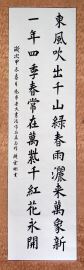 東風吹出千山綠春雨灑來萬象新
一年四季春常在萬紫千紅花永開